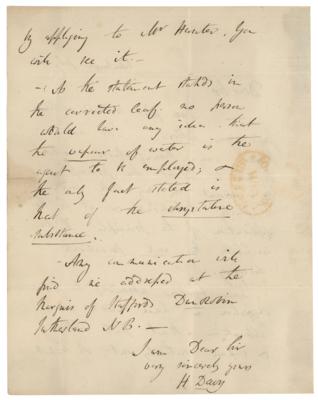 by applying to Mr Hunter. You
will see it. —
— As the statement stands in
the corrected leaf no person
would have any idea that
the vapour of water is the
agent to be employed; &
the only fact stated is
that of the
substance.
— Any communication will
find me addressed at the
Marquis of Staffords Dunrobin
Sutherland N B. —
I am Dear Sir
very sincerely yours
H Davy